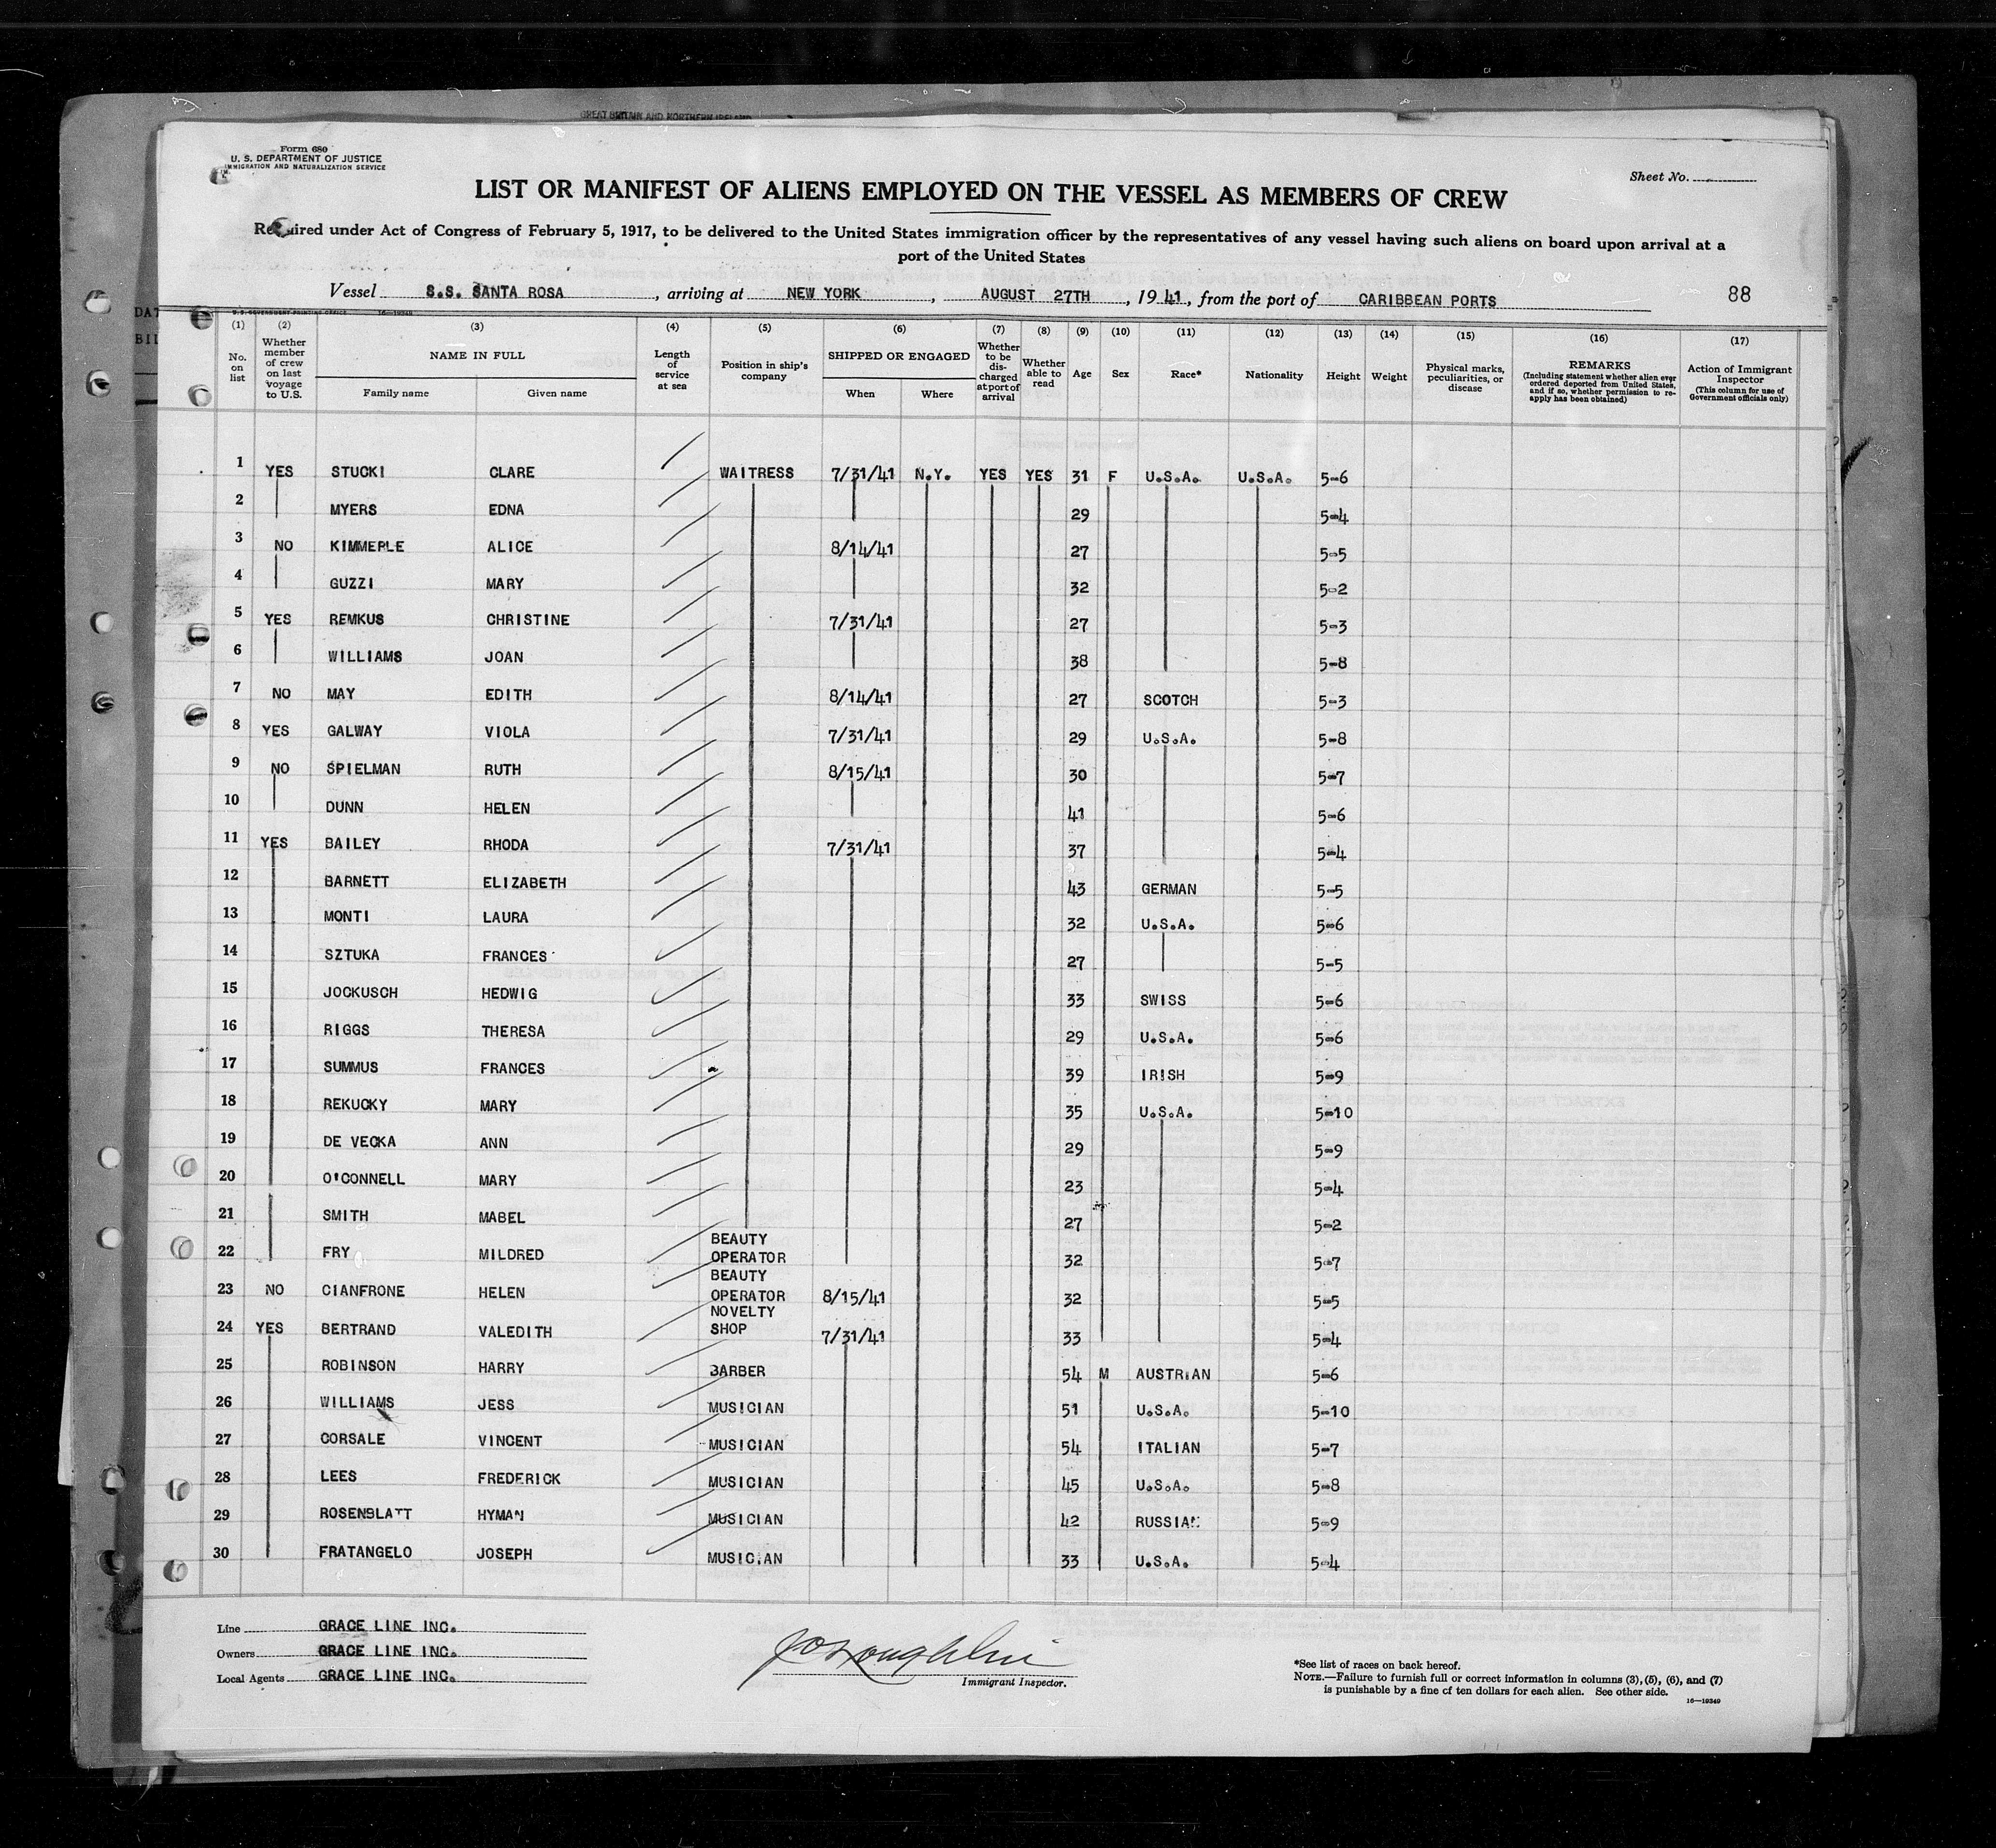 GREAT BRITAIN AND NORTHERN IRELAND
Form 680
U. S. DEPARTMENT OF JUSTICE
IMMIGRATION AND NATURALIZATION SERVICE
Sheet No.
LIST OR MANIFEST OF ALIENS EMPLOYED ON THE VESSEL AS MEMBERS OF CREW
Required under Act of Congress of February 5, 1917, to be delivered to the United States immigration officer by the representatives of any vessel having such aliens on board upon arrival at a
port of the United States
Vessel S.S. SANTA ROSA, arriving at NEW YORK, AUGUST 27TH, 1941, from the port of CARIBBEAN PORTS 88
U. S. GOVERNMENT PRINTING OFFICE 16—19349
(1) (2) (3) (4) (5) (6) (7) (8) (9) (10) (11) (12) (13) (14) (15) (16) (17)
No. on list
Whether member of crew on last voyage to U.S.
NAME IN FULL
Family name Given name
Length of service at sea
Position in ship's company
SHIPPED OR ENGAGED
When Where
Whether to be discharged at port of arrival
Whether able to read
Age Sex Race* Nationality Height Weight
Physical marks, peculiarities, or disease
REMARKS
(Including statement whether alien ever ordered deported from United States, and if so, whether permission to re-apply has been obtained)
Action of Immigrant Inspector
(This column for use of Government officials only)
1 YES STUCKI CLARE WAITRESS 7/31/41 N.Y. YES YES 31 F U.S.A. U.S.A. 5-6
2 MYERS EDNA 29 5-4
3 NO KIMMERLE ALICE 8/14/41 27 5-5
4 GUZZI MARY 32 5-2
5 YES REMKUS CHRISTINE 7/31/41 27 5-3
6 WILLIAMS JOAN 38 5-8
7 NO MAY EDITH 8/14/41 27 SCOTCH 5-3
8 YES GALWAY VIOLA 7/31/41 29 U.S.A. 5-8
9 NO SPIELMAN RUTH 8/15/41 30 5-7
10 DUNN HELEN 41 5-6
11 YES BAILEY RHODA 7/31/41 37 5-4
12 BARNETT ELIZABETH 43 GERMAN 5-5
13 MONTI LAURA 32 U.S.A. 5-6
14 SZTUKA FRANCES 27 5-5
15 JOCKUSCH HEDWIG 33 SWISS 5-6
16 RIGGS THERESA 29 U.S.A. 5-6
17 SUMMUS FRANCES 39 IRISH 5-9
18 REKUCKY MARY 35 U.S.A. 5-10
19 DE VECKA ANN 29 5-9
20 O'CONNELL MARY 23 5-4
21 SMITH MABEL 27 5-2
22 FRY MILDRED BEAUTY OPERATOR 32 5-7
23 NO CIANFRONE HELEN BEAUTY OPERATOR 8/15/41 32 5-5
24 YES BERTRAND VALEDITH NOVELTY SHOP 7/31/41 33 5-4
25 ROBINSON HARRY BARBER 54 M AUSTRIAN 5-6
26 WILLIAMS JESS MUSICIAN 51 U.S.A. 5-10
27 CORSALE VINCENT MUSICIAN 54 ITALIAN 5-7
28 LEES FREDERICK MUSICIAN 45 U.S.A. 5-8
29 ROSENBLATT HYMAN MUSICIAN 42 RUSSIAN 5-9
30 FRATANGELO JOSEPH MUSICIAN 33 U.S.A. 5-4
Line GRACE LINE INC.
Owners GRACE LINE INC.
Local Agents GRACE LINE INC.
Immigrant Inspector.
*See list of races on back hereof.
NOTE.—Failure to furnish full or correct information in columns (3), (5), (6), and (7)
is punishable by a fine of ten dollars for each alien. See other side.
16—19349